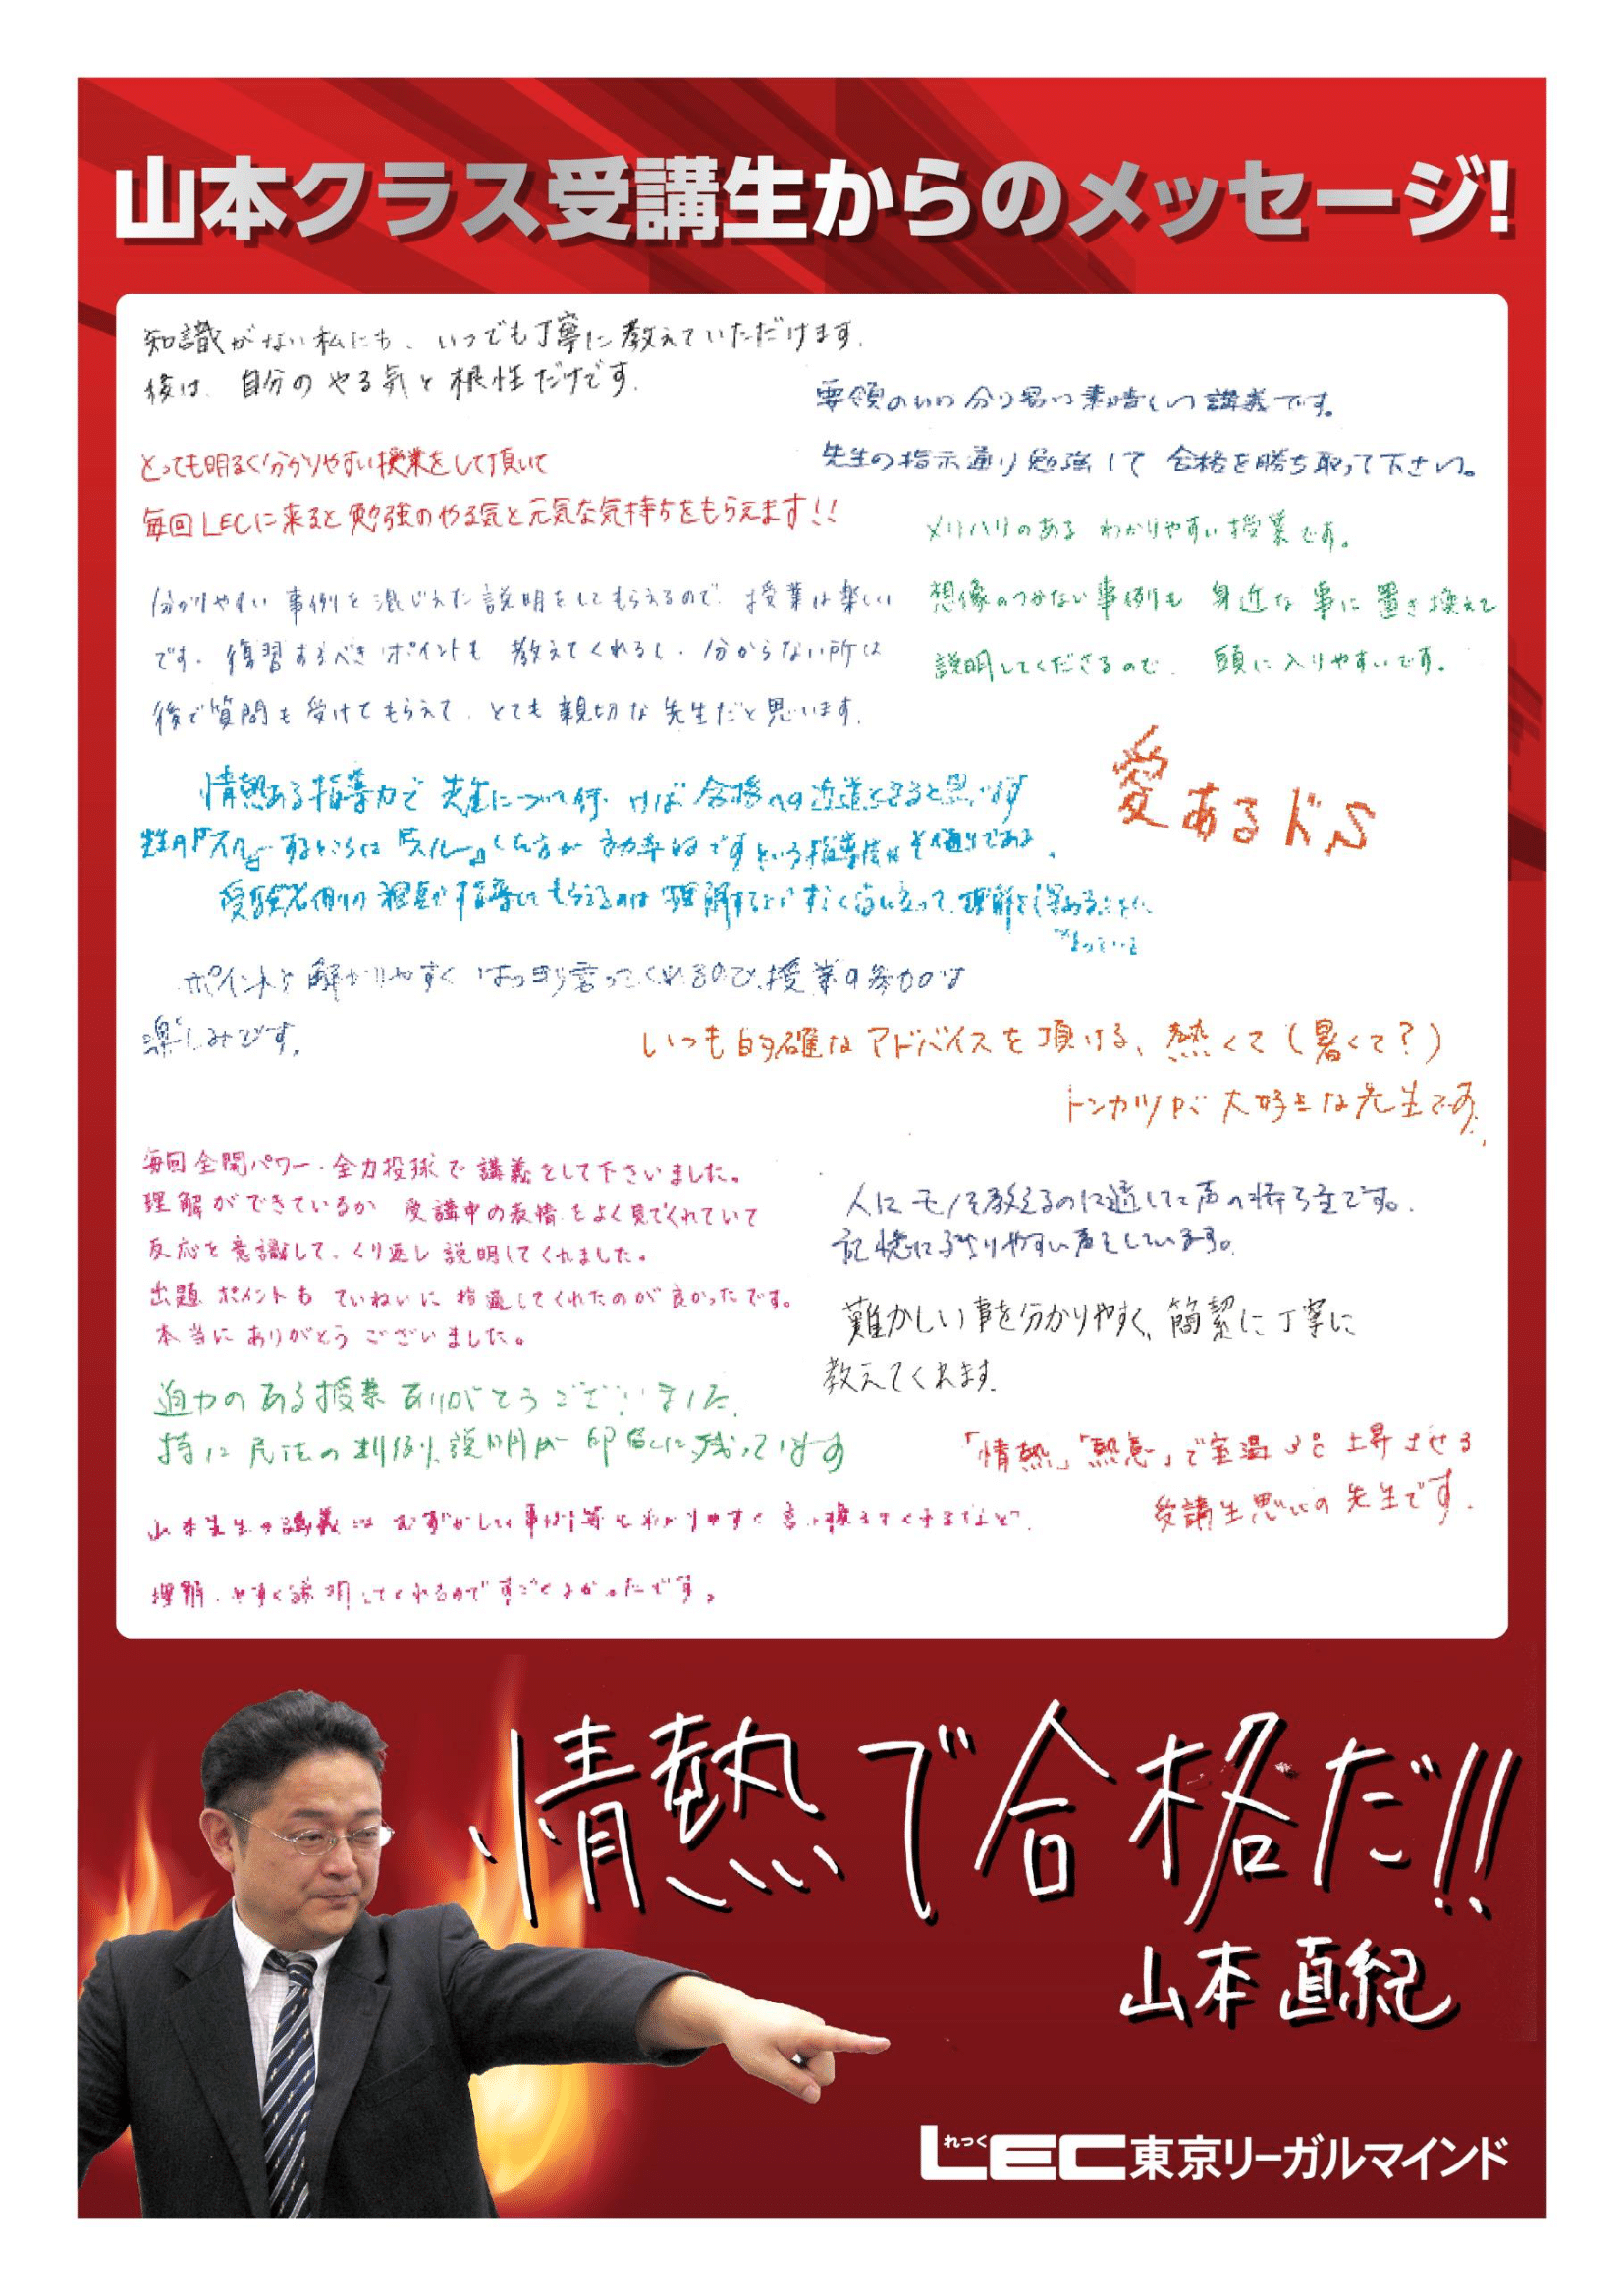 山本クラス受講生からのメッセージ!
知識がない私にも、いつでも丁寧に教えていただけます.
後は、自分のやる気と根性だけです.
要領のいい分り易い素晴しい講義です。
先生の指示通り勉強して合格を勝ち取って下さい。
とっても明るく分かりやすい授業をして頂いて
毎回LECに来ると勉強のやる気と元気な気持ちをもらえます!!
メリハリのあるわかりやすい授業です。
想像のつかない事例も身近な事に置き換えて
説明してくださるので、頭に入りやすいです。
分かりやすい事例を混じえた説明をしてもらえるので、授業は楽しい
です。復習するべきポイントも教えてくれるし、分からない所は
後で質問も受けてもらえて、とても親切な先生だと思います。
情熱ある指導力で先生について行けば合格への近道となると思います
という指導はその通りである。
受験者側の視点で指導してもらえるのは
なっている
愛あるドS
ポイントを解かりやすくはっきり言ってくれるので、授業の参加は
楽しみです。
いつも的確なアドバイスを頂ける、熱くて(暑くて?)
トンカツが大好きな先生です。
毎回全開パワー・全力投球で講義をして下さいました。
理解ができているか受講中の表情をよく見てくれていて
反応を意識して、くり返し説明してくれました。
出題ポイントもていねいに指適してくれたのが良かったです。
本当にありがとうございました。
人にモノを教えるのに適した声の持ち主です。
記憶に残りやすい声をしています。
難かしい事を分かりやすく、簡潔に丁寧に
教えてくれます.
迫力のある授業ありがとうございました.
特に民法の判例、説明が印象に残っています
「情熱」「熱意」で室温3℃上昇させる
受講生思いの先生です.
山本先生の講義はむずかしい事例等もわかりやすく言い換えてくれるなど、
理解しやすく説明してくれるのですごくよかったです。
情熱で合格だ!!
山本 直紀
れっく
LEC東京リーガルマインド